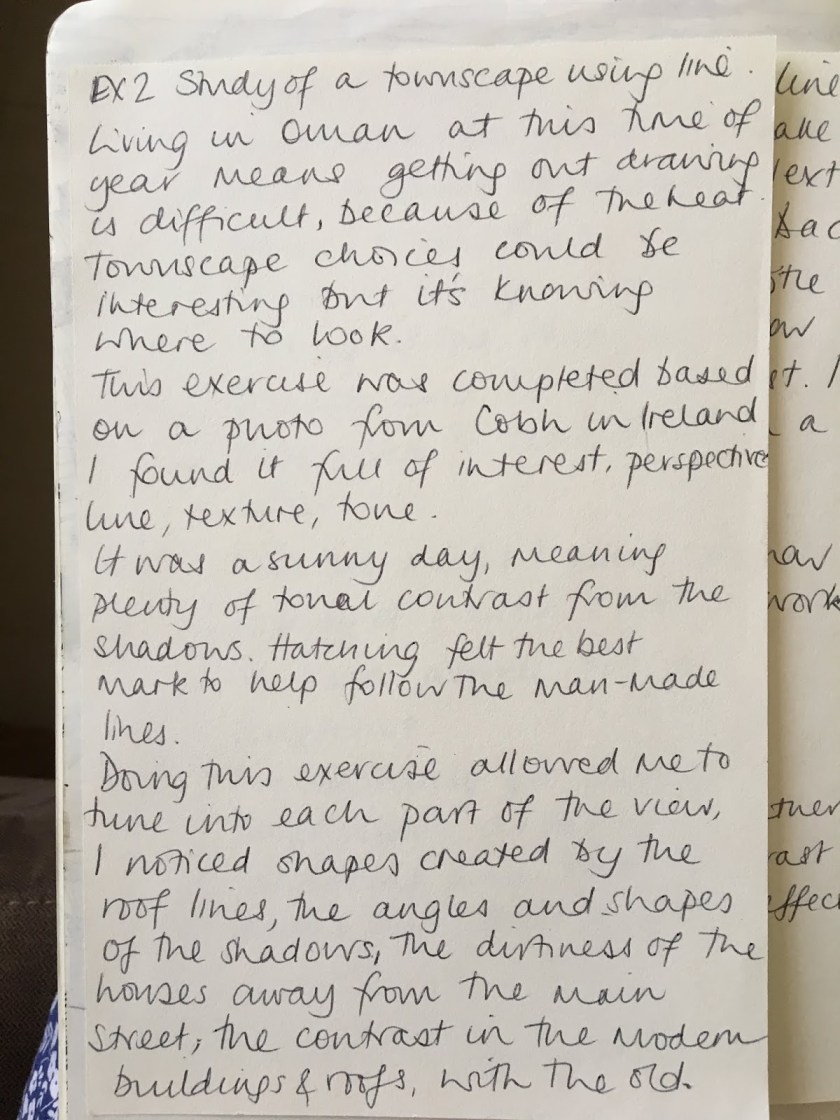 EX2 Study of a townscape using line.
Living in Oman at this time of
year means getting out drawing
is difficult, because of the heat.
Townscape choices could be
interesting but it's knowing
where to look.
This exercise was completed based
on a photo from Cobh in Ireland
I found it full of interest, perspective
line, texture, tone.
It was a sunny day, meaning
plenty of tonal contrast from the
shadows. Hatching felt the best
mark to help follow the man-made
lines.
Doing this exercise allowed me to
tune into each part of the view,
I noticed shapes created by the
roof lines, the angles and shapes
of the shadows, the dirtiness of the
houses away from the main
street, the contrast in the modern
buildings & roofs, with the old.
line
a
work